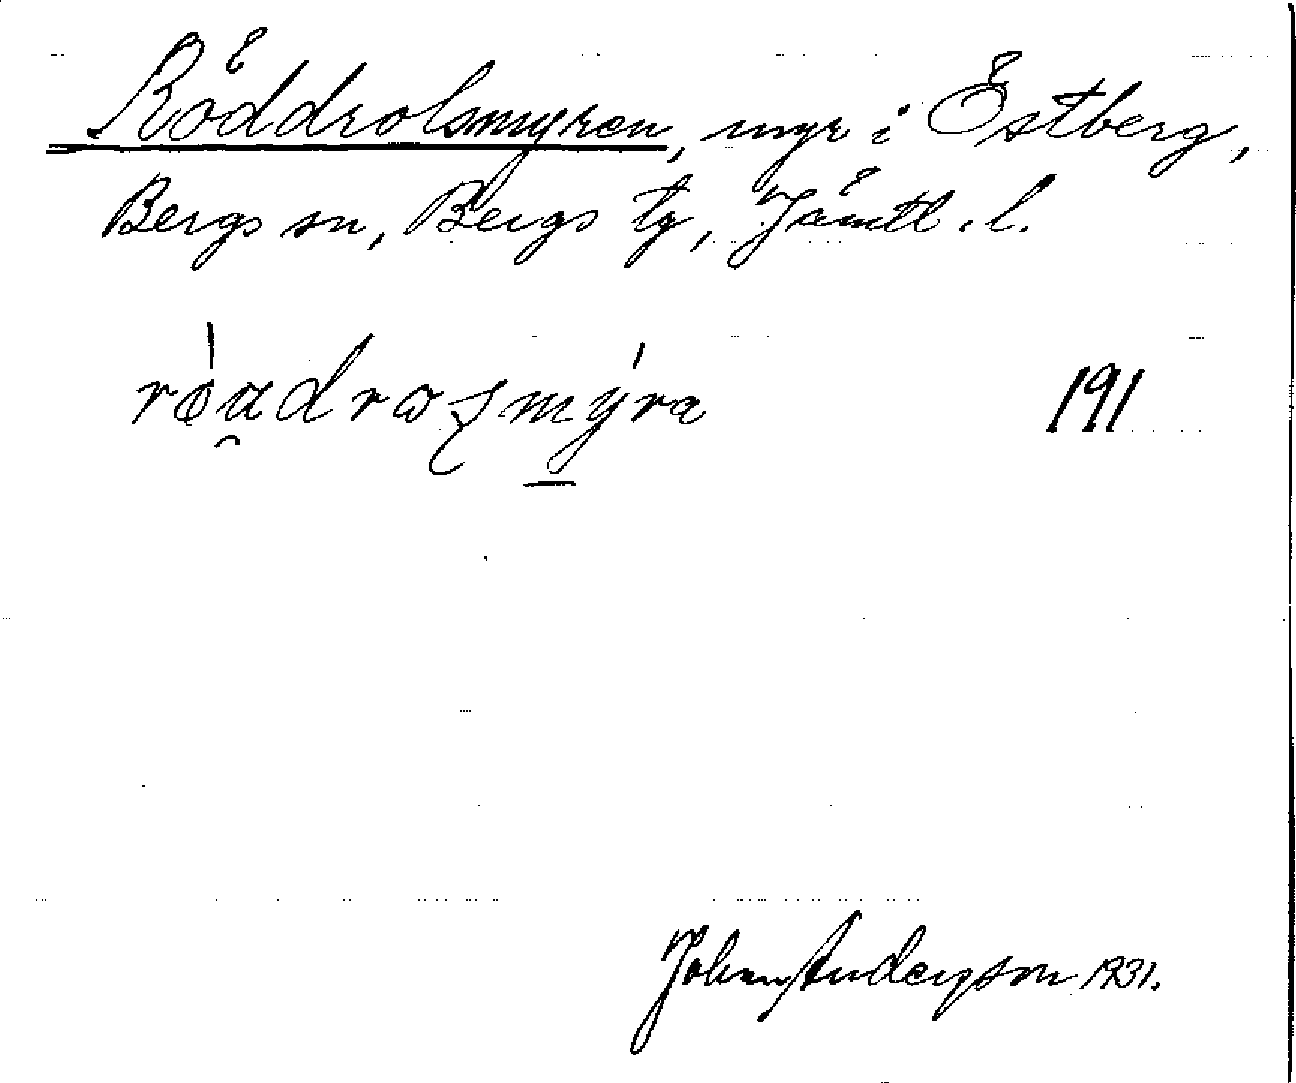 Röddrolsmyren, myr i Östberg,
Bergs sn, Bergs tg, Jämtl. l.
191
Johan Anderson 1931.